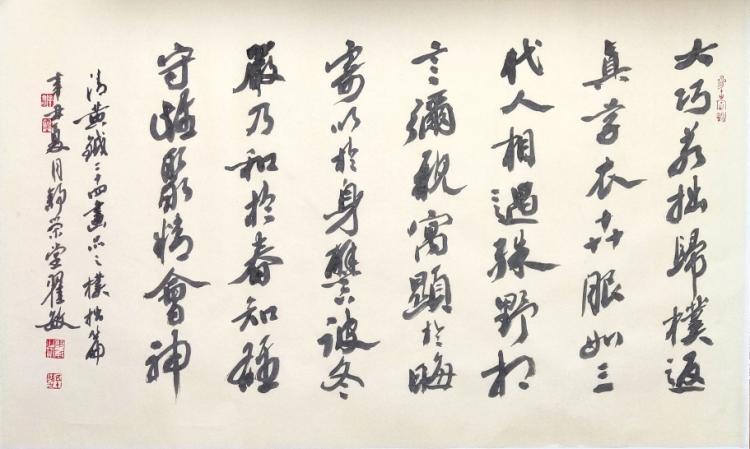 大巧若拙歸樸返
真草衣卉服如三
代人相遇殊野相
言彌親寓顯於晦
寄心於身譬彼冬
嚴乃和於春知雄
守雌聚精會神
清黄鉞二十四畫品之樸拙篇
辛丑夏月靜榮堂翟敏